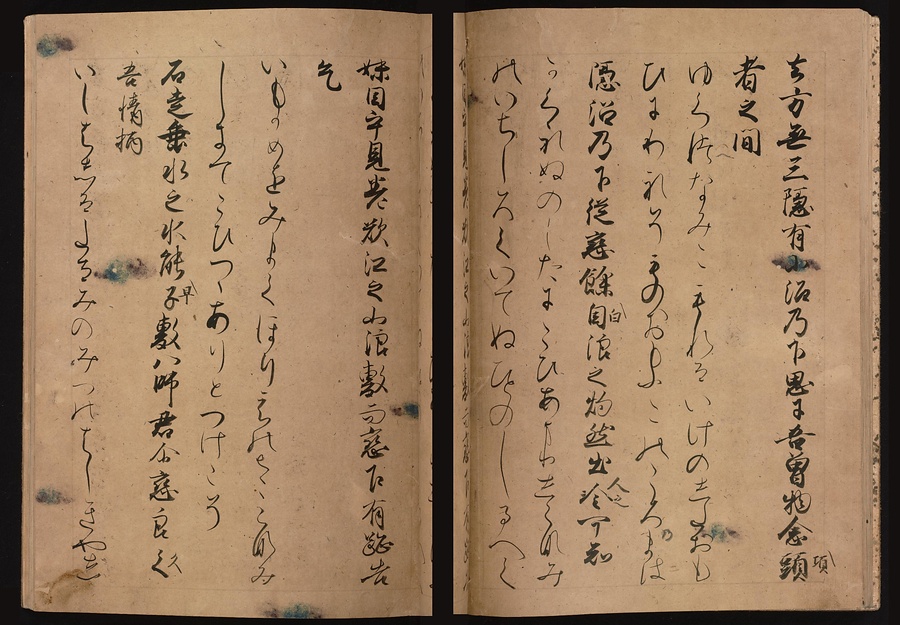 去方無三隠有小沼乃下思尓吾曽物念頭
項
者之間
ゆくへなみこもれるいけのしたおも
ひにわれそものおもふこのころまは
隠沼乃下従戀餘目浪之灼然出冷可知
白
人之
かくれぬのしたにこひあまりしらなみ
のいちしろくいてぬひとのしるへく
妹目乎見巻欲江之小浪敷而戀乍有跡告
乞
いもかめをみまくほりえのさゝなみ
しきてこひつゝありとつけこそ
石走垂水之水能子敷八師君尓戀良久
早
吾情柄
いしはしるたるみのみつのはしきやし